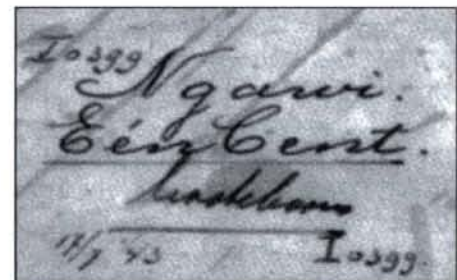 I0399
Ngawi.
Eén Cent.
17/7 '43
I0399.